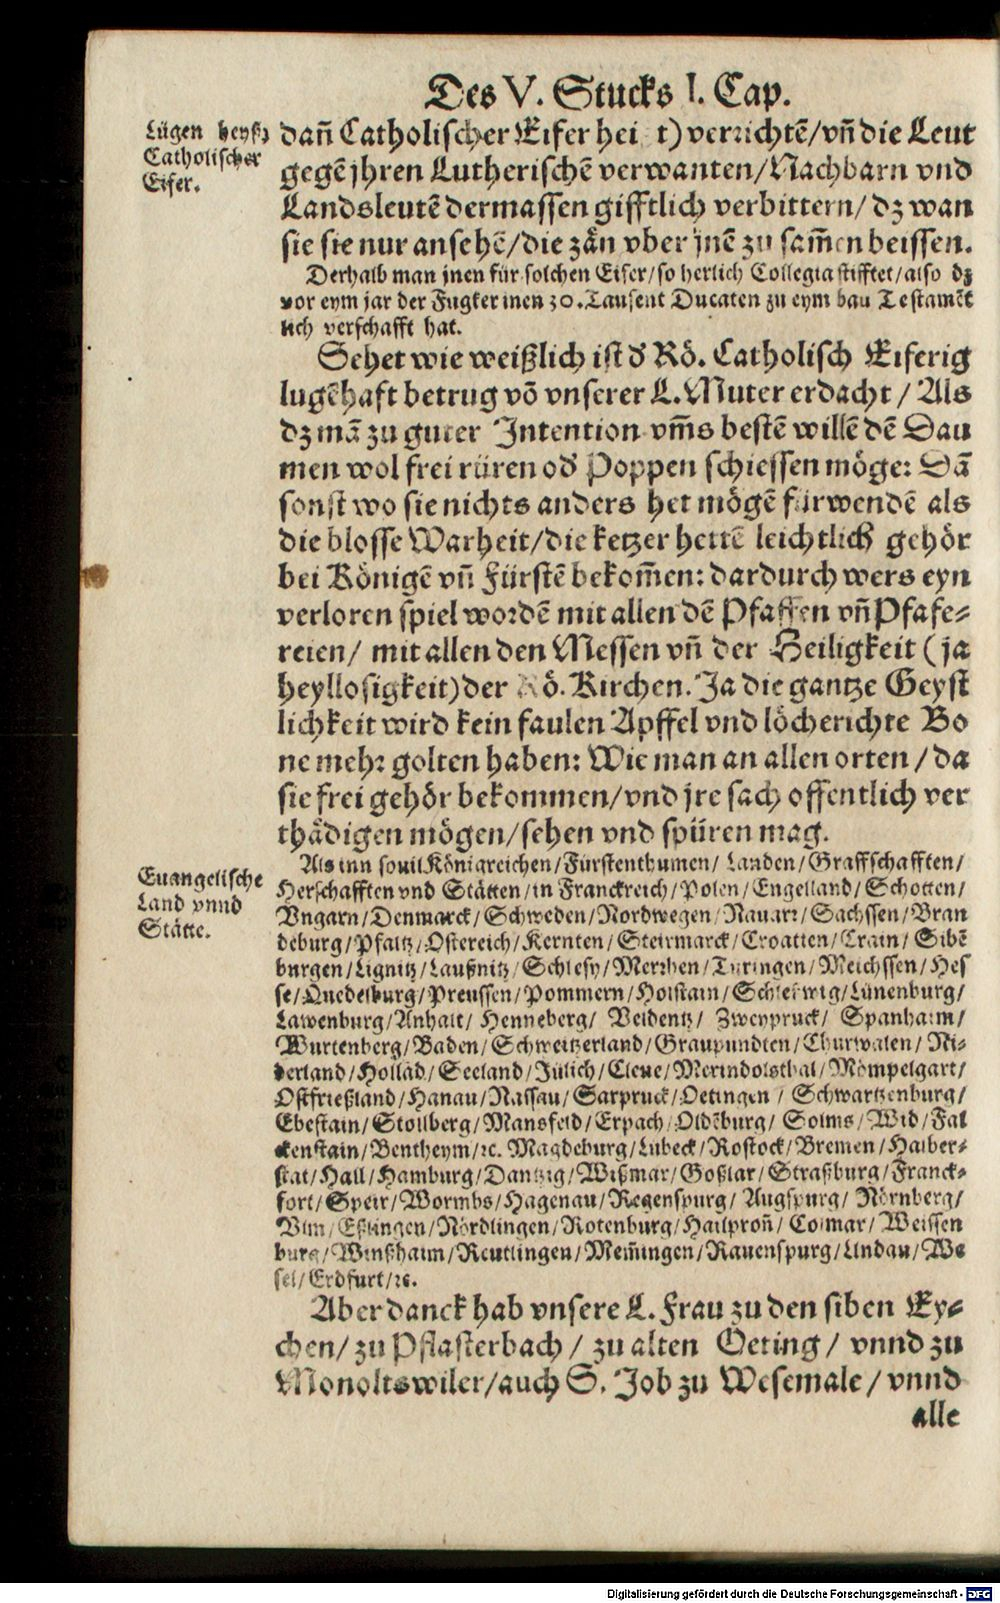 Des V. Stucks I. Cap.
Lügen heyßt
Catholischer
Eifer.
dañ Catholischer Eifer hei t) verrichtē/vñ die Leut
gegē jhren Lutherischē verwanten/Nachbarn vnd
Landsleutē dermassen gifftlich verbittern/ dz wan
sie sie nur ansehē/die zän vber jnē zu sam̄en beissen.
Derhalb man jnen für solchen Eifer/so herlich Collegia stifftet/also dz
vor eym jar der Fugker inen 30. Tausent Ducaten zu eym bau Testamēt
lich verschafft hat.
Sehet wie weißlich ist d' Rö. Catholisch Eiferig
lugēhaft betrug vō vnserer L. Muter erdacht / Als
dz mā zu guter Intention vm̄s bestē willē dē Dau
men wol frei rüren od' Poppen schiessen möge: Dā
sonst wo sie nichts anders het mögē fürwendē als
die blosse Warheit/die ketzer hettē leichtlich gehör
bei Königē vñ Fürstē bekom̄en: dardurch wers eyn
verloren spiel wordē mit allen dē Pfaffen vñ Pfafe⸗
reien/ mit allen den Messen vñ der Heiligkeit ( ja
heyllosigkeit) der Rö. Kirchen. Ja die gantze Geyst
lichkeit wird kein faulen Apffel vnd löcherichte Bo
ne mehr golten haben: Wie man an allen orten / da
sie frei gehör bekommen/vnd jre sach offentlich ver
thädigen mögen/sehen vnd spüren mag.
Euangelische
Land vnnd
Stätte.
Als inn souil Königreichen/Fürstenthumen/ Landen/Graffschafften/
Herschafften vnd Stätten/in Franckreich/Polen/Engelland/Schotten/
Vngarn/Denmarck/Schweden/Nordwegen/Nauarr/Sachssen/Bran
deburg/Pfaltz/Ostereich/Kernten/Steirmarck/Croatien/Crain/ Sibē
burgen/Lignitz/Laußnitz/Schlesy/Merrhen/Tyringen/Meichssen/Hes
se/Quedelburg/Preussen/Pommern/Holstain/Schleswig/Lünenburg/
Lawenburg/Anhalt/ Henneberg/ Veldentz/ Zweypruck/ Spanhaim/
Wurtenberg/Baden/Schweitzerland/Graupundten/Churwalen/ Ni⸗
derland/Hollād/Seeland/Jülich/Cleue/Merindolsthal/Mömpelgart/
Ostfrießland/Hanau/Nassau/Sarpruck/Oetingen / Schwartzenburg/
Ebestain/Stollberg/Mansfeld/Erpach/Oldēburg/ Solms/Wid/Fal
ckenstain/Bentheym/ꝛc. Magdeburg/Lubeck/Rostock/Bremen/Halber⸗
stat/Hall/Hamburg/Dantzig/Wißmar/Goßlar/Straßburg/Franck⸗
fort/Speir/Wormbs/Hagenau/Regenspurg/ Augspurg/ Nörnberg/
Vlm/Eßlingen/Nördlingen/Rotenburg/Hailproñ/ Colmar/ Weissen
burg/Winßhaim/Reutlingen/Mem̄ingen/Rauenspurg/Lindau/We
sel/Erdfurt/ꝛc.
Aber danck hab vnsere L. Frau zu den siben Ey⸗
chen/ zu Pflasterbach / zu alten Oeting / vnnd zu
Monoltswiler/auch S. Job zu Wesemale / vnnd
alle
Digitalisierung gefördert durch die Deutsche Forschungsgemeinschaft - DFG